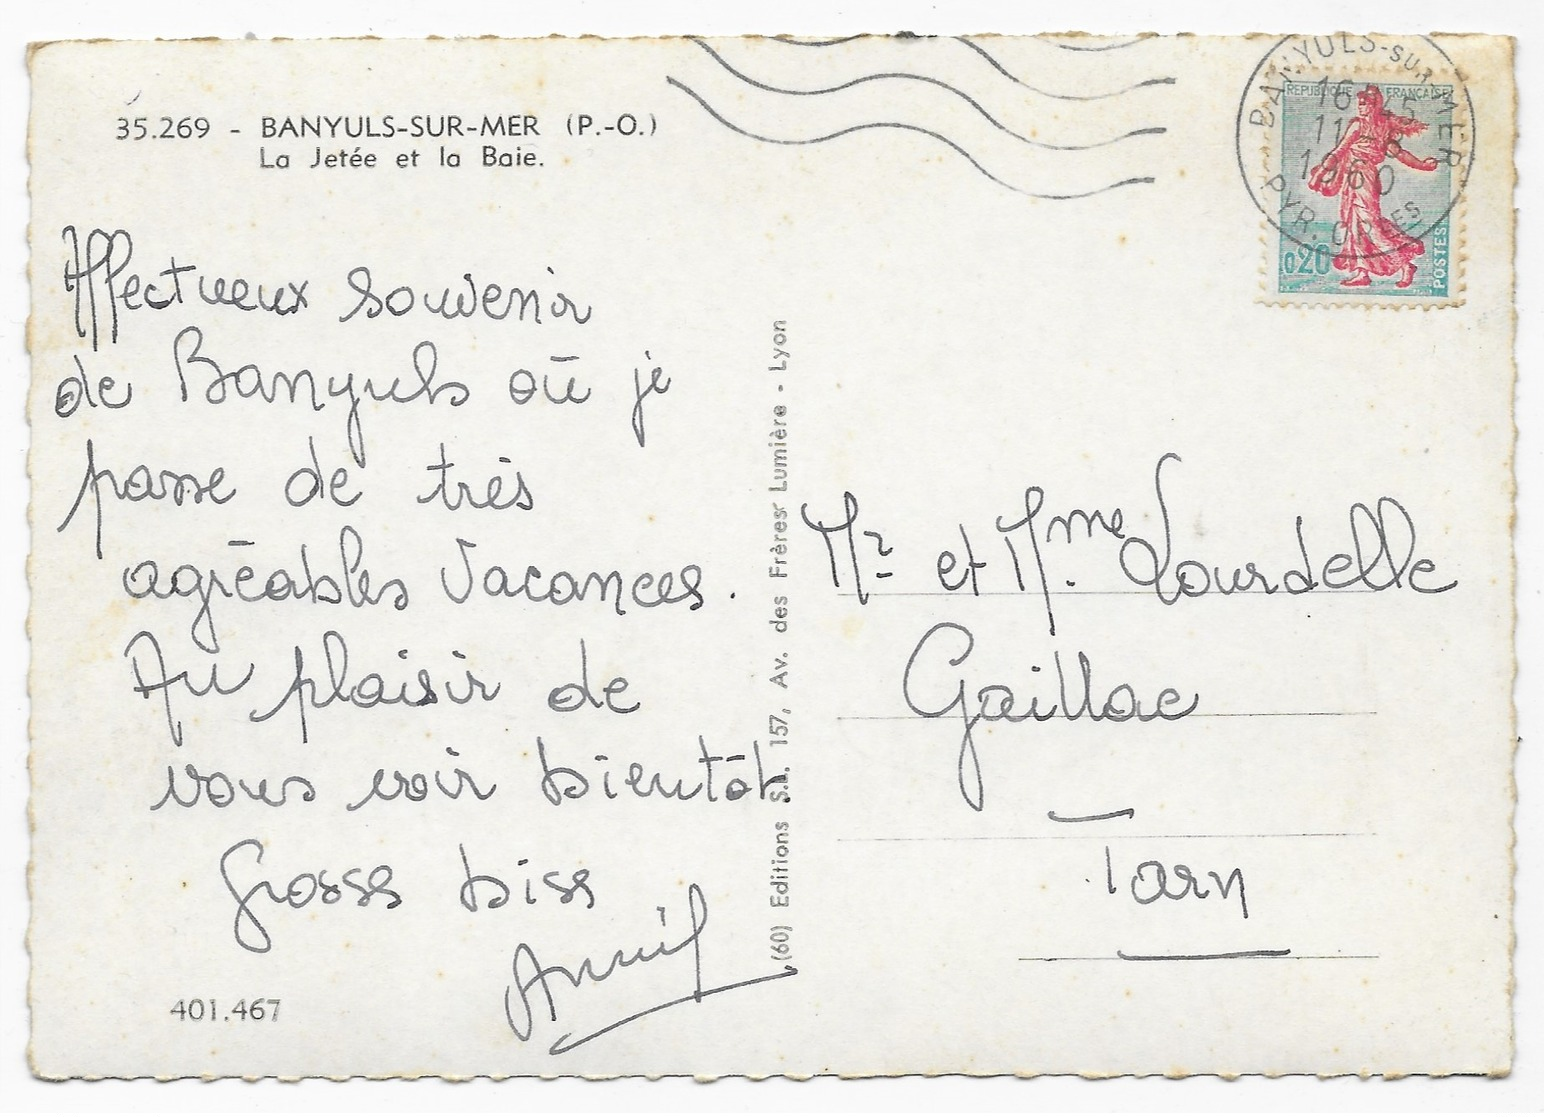 35.269 - BANYULS-SUR-MER (P.-O.)
La Jetée et la Baie.
Affectueux souvenir
de Banyuls où je
passe de très
agréables vacances.
Au plaisir de
vous voir bientôt.
Grosses bises
401.467
(60) Editions S.L. 157, Av. des Frères Lumière - Lyon
BANYULS-SUR-MER
16H45
11-8
1960
PYR. OR^LES
REPUBLIQUE FRANÇAISE
0,20
POSTES
Mr et Mme Lourdelle
Gaillac
Tarn